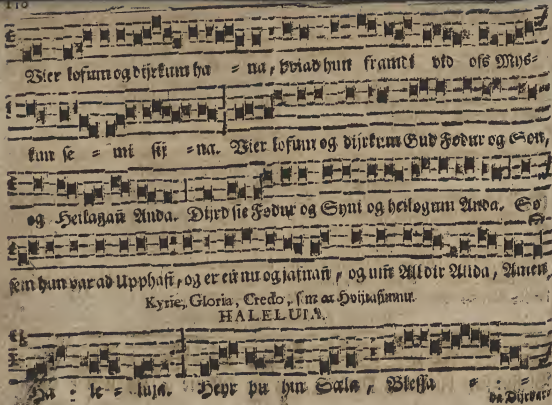 Vier lofum og dijrkum ha = na, þviad hun framdi vid oss Mys-
kun se = mi sij = na. Vier lofum og dijrkum Gud Fødur og Son,
og Heilagañ Anda. Dijrd sie Fødur og Syni og heilogum Anda. So
sem hun var ad Upphafi, og er eñ nu og jafnañ, og um Alldir Allda, Amen,
Kyrie, Gloria, Credo, sem ax Hvijtasunnu.
HALELUIA.
Ha = le = luja. Heyr þu hin Sæla, Blessa = =
da Dijrdar